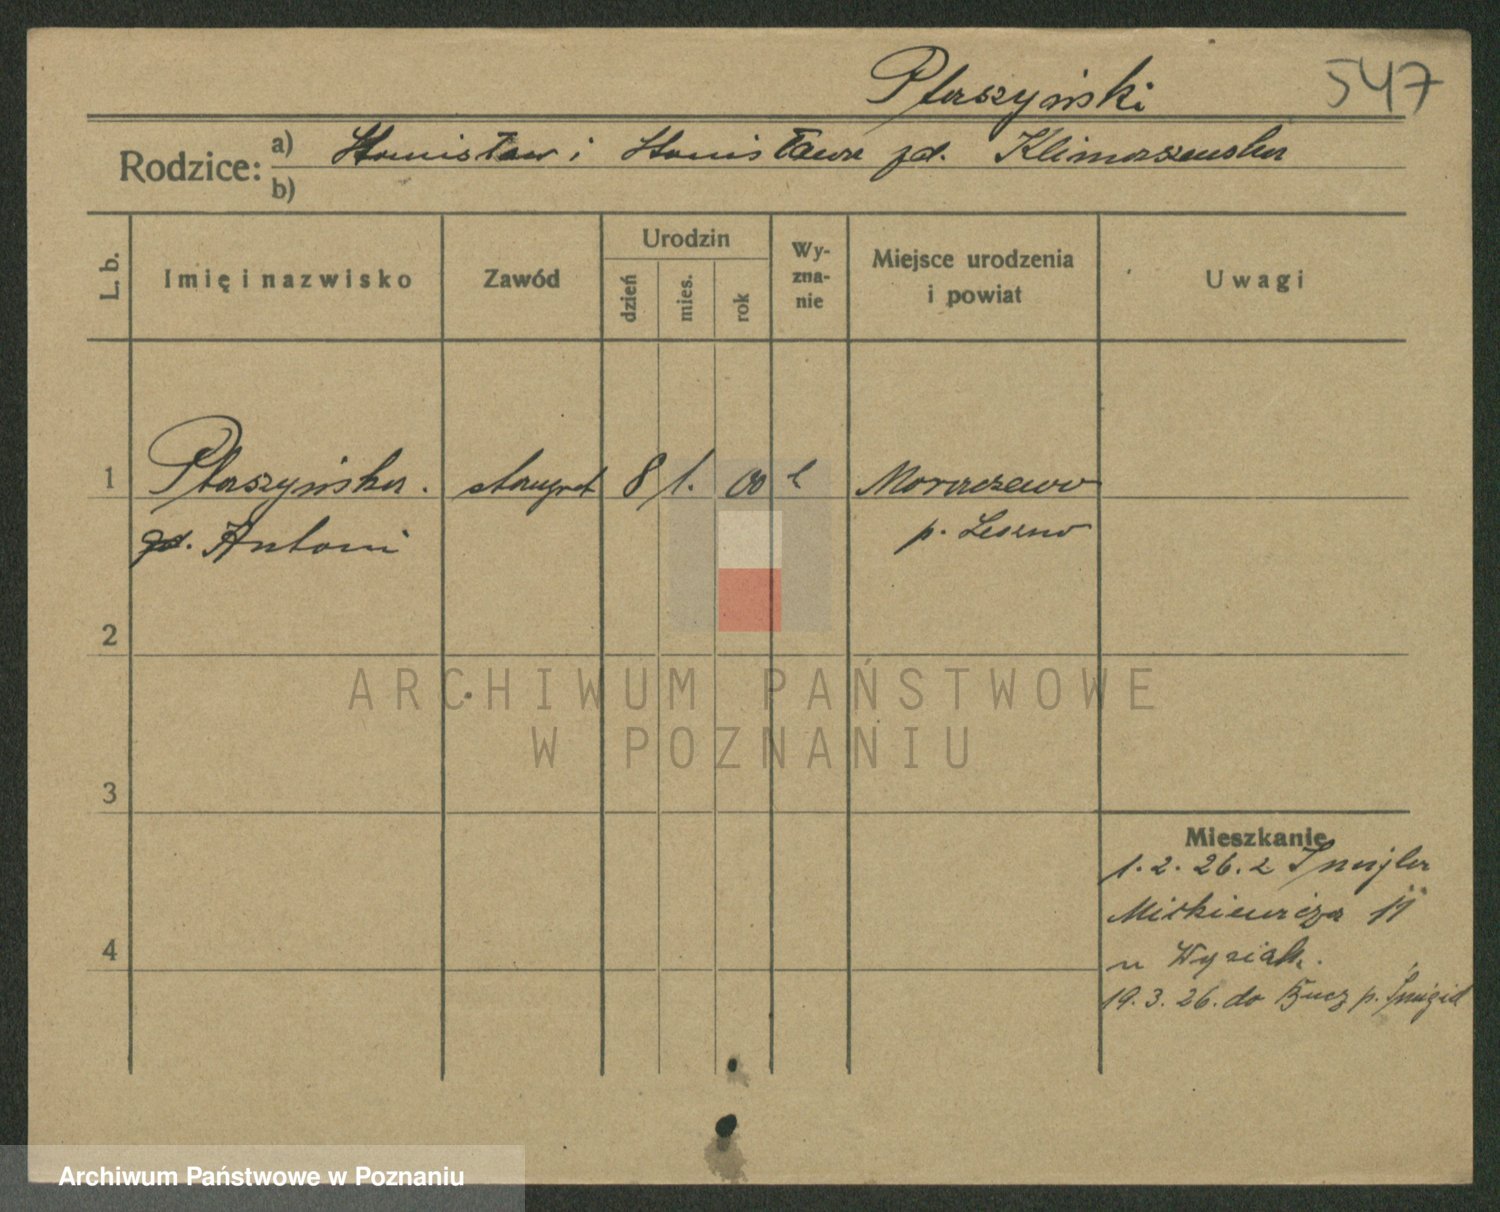 Ptaszyński 547
Rodzice: a) Stanisław i Stanisława zd. Klimaszewska
b)
L. b.
Imię i nazwisko
Zawód
Urodzin
dzień
mies.
rok
Wy-
zna-
nie
Miejsce urodzenia
i powiat
Uwagi
1 Ptaszyńska. 8 1. 00 Moraczewo
zd. Antoni p. Leszno
2
ARCHIWUM PAŃSTWOWE
W POZNANIU
3
Mieszkanie
1. 2. 26. z
Mickiewicza 11
4 u
19. 3. 26. do Bucz p. Śmigiel
Archiwum Państwowe w Poznaniu